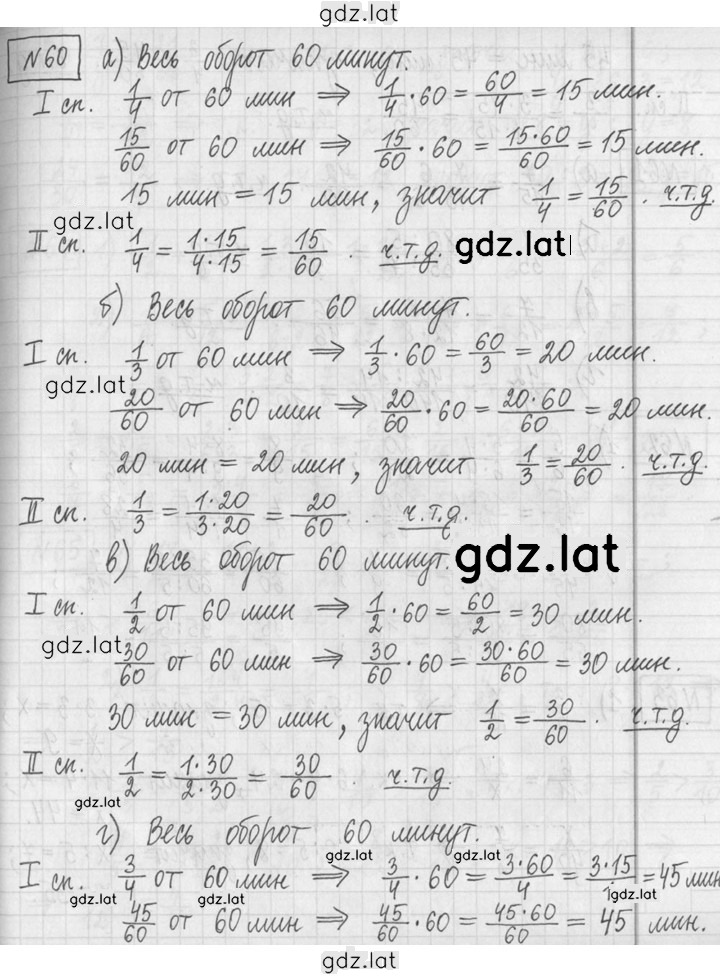 gdz.lat
N60 а) Весь оборот 60 минут.
I сп. 1/4 от 60 мин ⇒ 1/4 · 60 = 60/4 = 15 мин.
15/60 от 60 мин ⇒ 15/60 · 60 = 15·60/60 = 15 мин.
15 мин = 15 мин, значит 1/4 = 15/60 . ч.т.д.
gdz.lat
II сп. 1/4 = 1·15/4·15 = 15/60 . ч.т.д. gdz.lat
б) Весь оборот 60 минут.
I сп. 1/3 от 60 мин ⇒ 1/3 · 60 = 60/3 = 20 мин.
gdz.lat
20/60 от 60 мин ⇒ 20/60 · 60 = 20·60/60 = 20 мин.
20 мин = 20 мин, значит 1/3 = 20/60 . ч.т.д.
II сп. 1/3 = 1·20/3·20 = 20/60 . ч.т.д.
в) Весь оборот 60 минут. gdz.lat
I сп. 1/2 от 60 мин ⇒ 1/2 · 60 = 60/2 = 30 мин.
gdz.lat
30/60 от 60 мин ⇒ 30/60 · 60 = 30·60/60 = 30 мин.
30 мин = 30 мин, значит 1/2 = 30/60 . ч.т.д.
II сп. 1/2 = 1·30/2·30 = 30/60 . ч.т.д.
gdz.lat
г) Весь оборот 60 минут.
gdz.lat gdz.lat
I сп. 3/4 от 60 мин ⇒ 3/4 · 60 = 3·60/4 = 3·15/1 = 45 мин
gdz.lat gdz.lat
45/60 от 60 мин ⇒ 45/60 · 60 = 45·60/60 = 45 мин.
gdz.lat